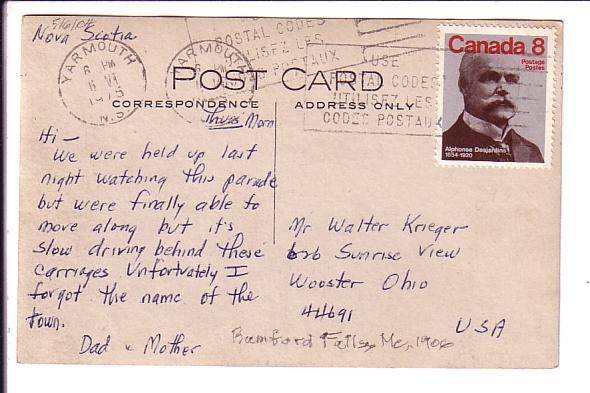 5/6/04
Nova Scotia
YARMOUTH
PM
VI
1975
N.S.
YARMOUTH
POSTAL CODES
UTILISEZ LES
POSTAUX
USE
POSTAL CODES
UTILISEZ LES
CODES POSTAUX
Canada 8
Postage
Postes
Alphonse Desjardins
1854-1920
POST CARD
CORRESPONDENCE ADDRESS ONLY
Thurs Morn
Hi—
We were held up last
night watching this parade
but were finally able to
move along but it's
slow driving behind these
carriages Unfortuately I
forgot the name of the
town.
Dad & Mother
Mr Walter Krieger
626 Sunrise View
Wooster Ohio
44691
USA
Rumford Falls, Me, 1906